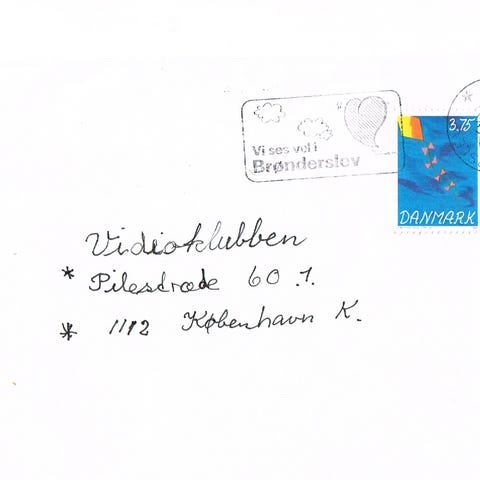 Vi ses vel i
Brønderslev
3.75
DANMARK
Vidioklubben
* Pilestræde 60 .1.
* 1112 København K.